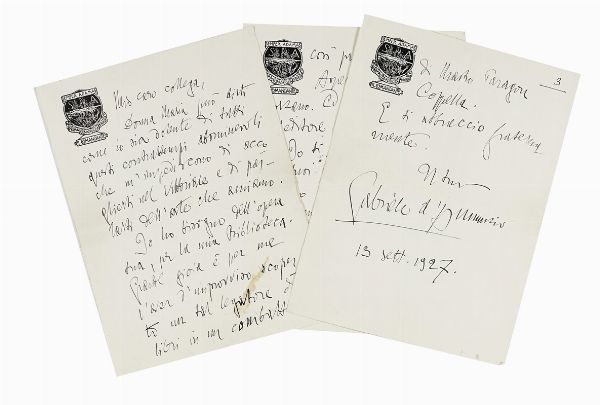 Mio caro collega,
Donna Maria può dirti
come io sia dolente di tutti
questi contrattempi abominevoli
che m'impediscono di acco
glierti nel Vittoriale e di par-
larti dell'arte che amiamo.
Io ho bisogno dell'opera
tua, per la mia Biblioteca.
gioia è per me
l'aver d'improvviso scoper
to un tal legatore di
libri in un
così
editore
Io ti
3
di Mastro Paragon
Coppella.
E ti abbraccio fraterna
mente.
Il tuo
Gabriele d'Annunzio
13 sett. 1927.